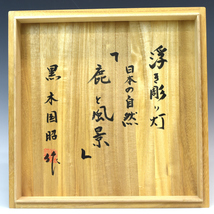 浮き彫り灯
日本の自然
「鹿と風景」
黒木国昭 作